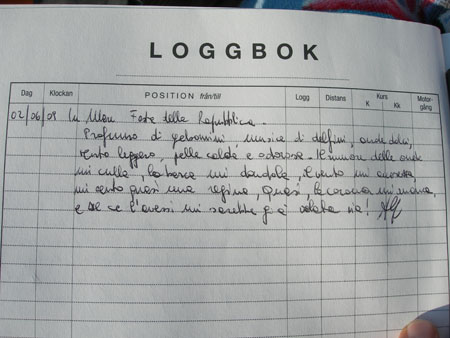 LOGGBOK
Dag Klockan POSITION från/till Logg Distans Kurs Motor-
K Kk gång
02/06/09 In Mare Festa della Repubblica.
Profumo di gelsomini musica di delfini, onde dolci,
vento leggero, pelle calda e odorosa. Il rumore delle onde
mi culla, la barca mi dondola, il vento mi accarezza
mi sento quasi una regina, quasi, la corona mi manca,
e se ce l'avessi mi sarebbe già volata via!